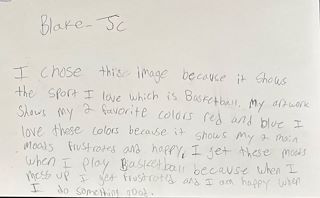 Blake - Jc
I chose this image because it shows
the sport I love which is Basketball. My artwork
shows my 2 favorite colors red and blue I
love these colors because it shows my 2 main
moods frustrated and happy, I get these moods
when I play Basketball because when I
mess up I get frustrated and I am happy when
I do something good.